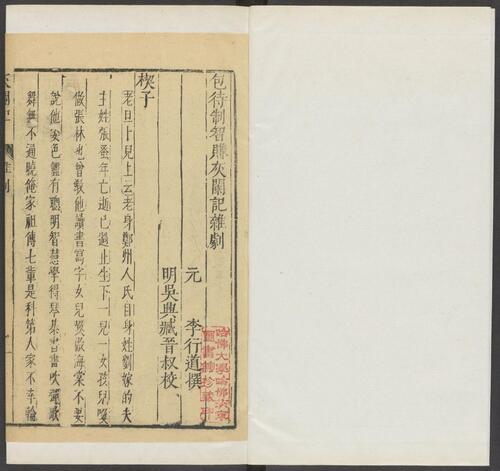 包待制智賺灰闌記雜劇
元 李行道撰
明吳興臧晉叔校
楔子
老旦卜兒上云老身鄭州人氏自身姓劉嫁的夫
主姓張蚤年亡逝已過止生下一兒一女孩兒喚
做張林也曾敎他讀書寫字女兒喚做海棠不要
說他姿色儘有聰明智慧學得琴棋書畫吹彈歌
舞無不通曉俺家祖傳七輩是科第人家不幸輪
灰闌記
雜劇
哈佛大學哈佛燕京
圖書館珍藏印